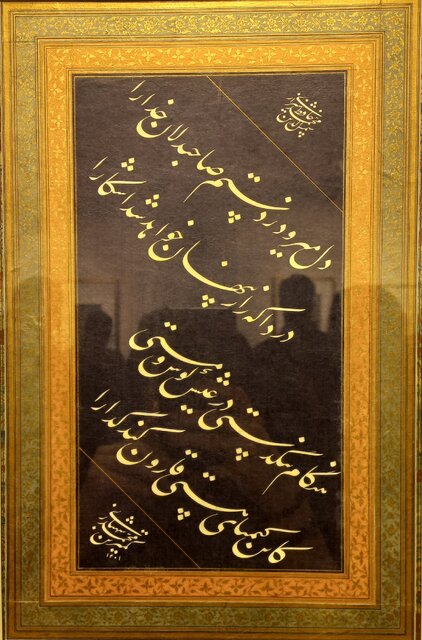 دل میرود ز دستم صاحبدلان خدا را
دردا که راز پنهان خواهد شد آشکارا
هنگام تنگدستی در عیش کوش و مستی
کاین کیمیای هستی قارون کند گدا را